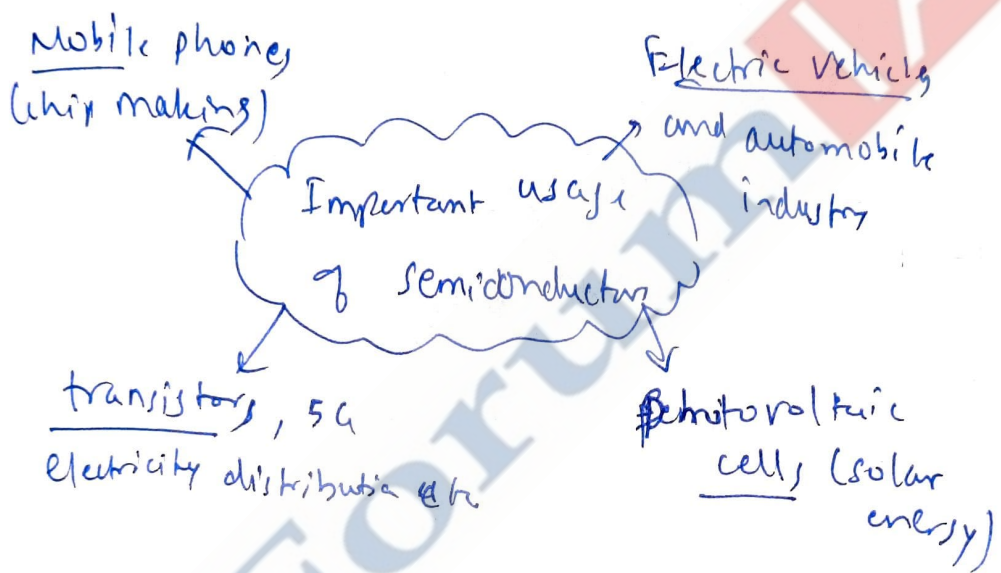 Mobile phones
(chip making)
Electric vehicles
and automobile
industry
Important usage
of semiconductors
transistors, 5G
electricity distribution etc
Photovoltaic
cells (solar
energy)
Forum